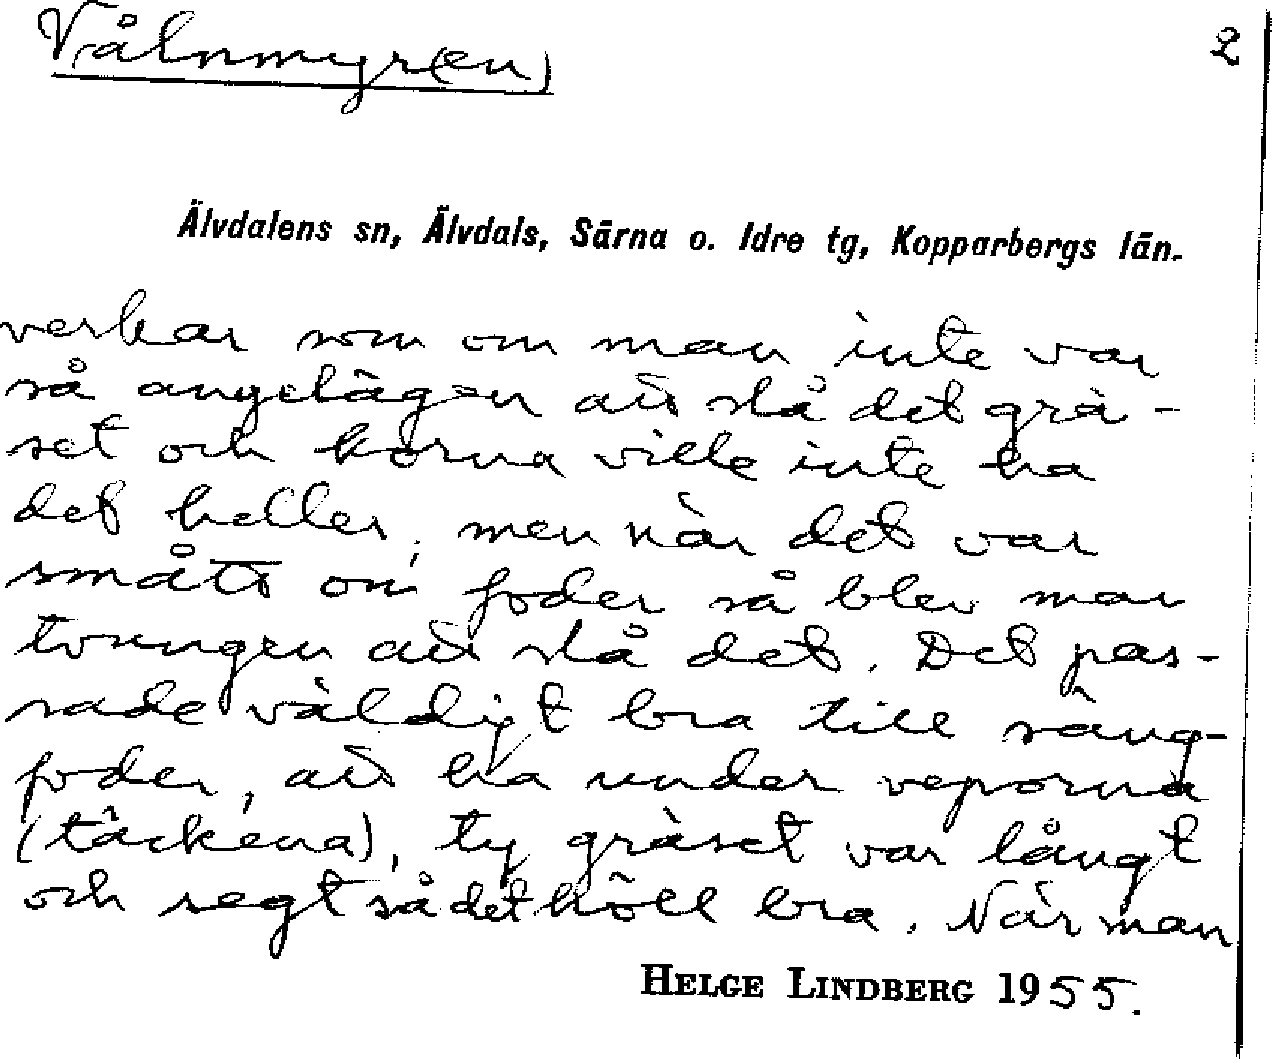 Vålnmyr(en)
2
Älvdalens sn, Älvdals, Särna o. Idre tg, Kopparbergs län.
verkar som om man inte var
så angelägen att slå det grä-
set och korna ville inte ha
det heller, men när det var
smått om foder så blev man
tvungen att slå det. Det pas-
sade väldigt bra till säng-
foder, att ha under veporna
(täckena), ty gräset var långt
och segt så det höll bra. När man
HELGE LINDBERG 1955.